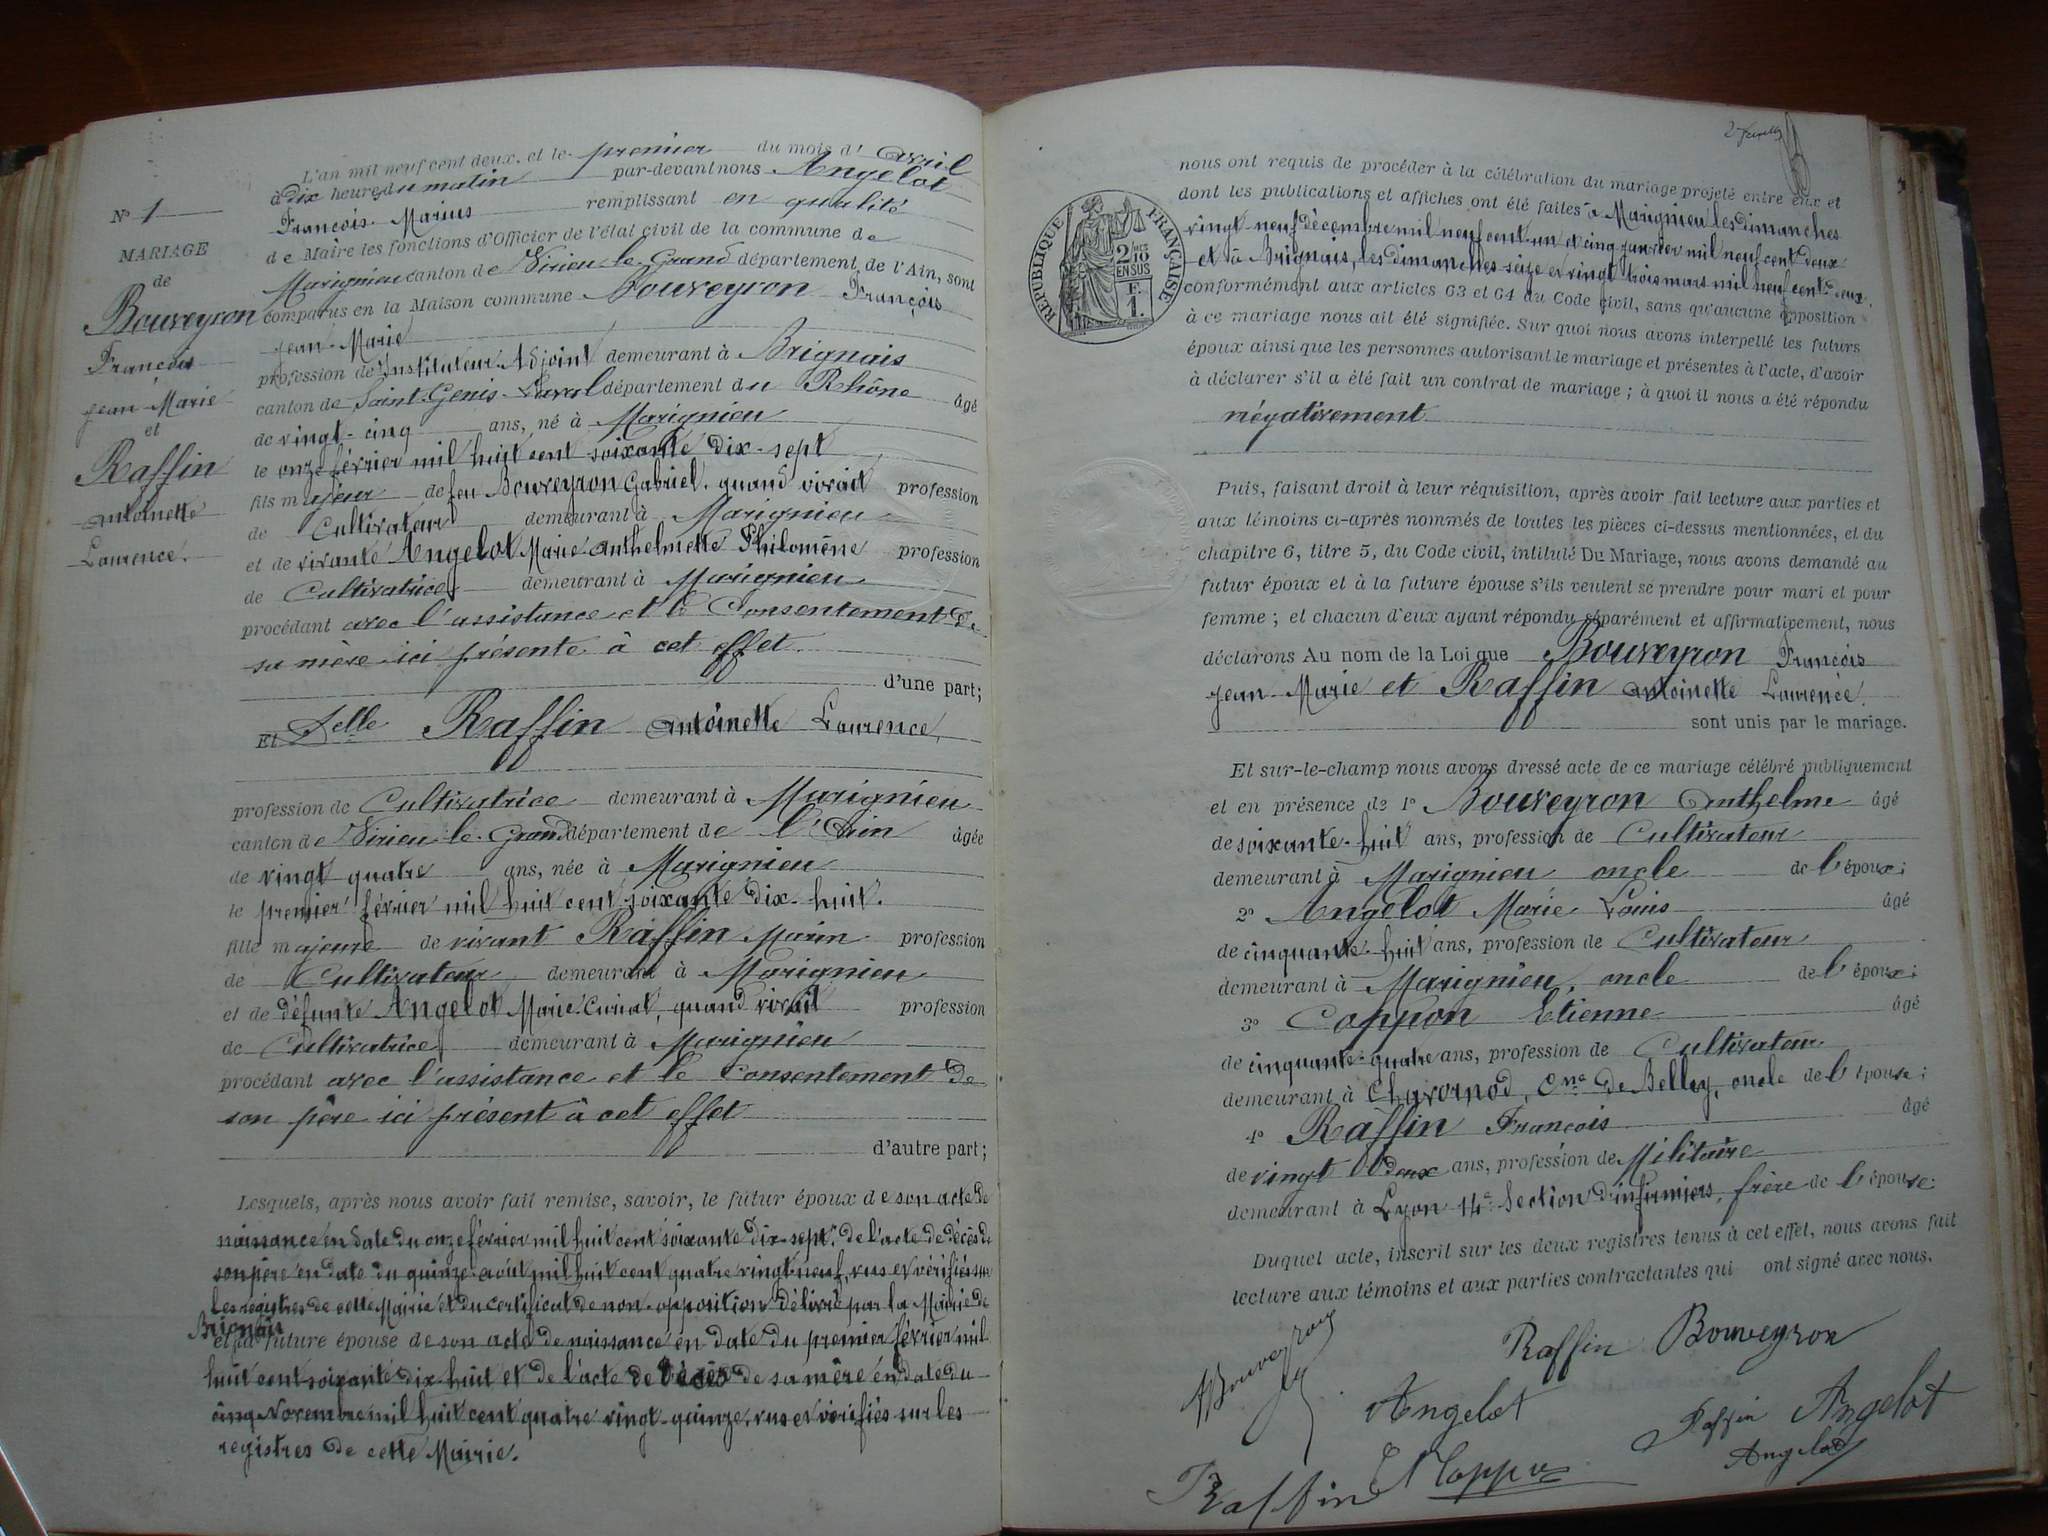 Nº 1
MARIAGE
de
Bouveyron
François
Jean-Marie
et
Raffin
Antoinette
Laurence.
L'an mil neuf cent deux, et le premier du mois d'avril
à dix heures du matin par-devant nous Angelot
François Marius remplissant en qualité
de Maire les fonctions d'Officier de l'état civil de la commune de
Marignieu canton de Virieu-le-Grand département de l'Ain, sont
comparus en la Maison commune Bouveyron François
Jean-Marie
profession de Instituteur Adjoint demeurant à Brignais
canton de Saint-Genis-Laval département du Rhône âgé
de vingt-cinq ans, né à Marignieu
le onze février mil huit cent soixante dix-sept
fils majeur de feu Bouveyron Gabriel, quand vivait profession
de Cultivateur demeurant à Marignieu
et de vivante Angelot Marie Anthelmette Philomène profession
de Cultivatrice demeurant à Marignieu
procédant avec l'assistance et le Consentement de
sa mère ici présente à cet effet
d'une part;
Et Delle Raffin Antoinette Laurence,
profession de Cultivatrice demeurant à Marignieu
canton de Virieu-le-Grand département de l'Ain âgée
de vingt quatre ans, née à Marignieu
le premier février mil huit cent soixante dix-huit.
fille majeure de vivant Raffin Marin profession
de Cultivateur demeurant à Marignieu
et de défunte Angelot Marie, quand vivait profession
de Cultivatrice demeurant à Marignieu
procédant avec l'assistance et le Consentement de
son père ici présent à cet effet
d'autre part;
Lesquels, après nous avoir fait remise, savoir, le futur époux de son acte de
naissance en date du onze février mil huit cent soixante dix-sept, de l'acte de décès de
son père en date du quinze août mil huit cent quatre vingt-neuf, vus et vérifiés sur
les registres de cette Mairie et du certificat de non-opposition délivré par la Mairie de
Brignais
et la future épouse de son acte de naissance en date du premier février mil
huit cent soixante dix-huit et de l'acte de décès de sa mère en date du
cinq Novembre mil huit cent quatre vingt-quinze, vus et vérifiés sur les
registres de cette Mairie.
RÉPUBLIQUE FRANÇAISE
2 10
EN SUS
F.
1.
nous ont requis de procéder à la célébration du mariage projeté entre eux et
dont les publications et affiches ont été faites à Marignieu les dimanches
vingt neuf décembre mil neuf cent un et cinq janvier mil neuf cent deux
et à Brignais, les dimanches seize et vingt trois mars mil neuf cent deux,
conformément aux articles 63 et 64 du Code civil, sans qu'aucune opposition
à ce mariage nous ait été signifiée. Sur quoi nous avons interpellé les futurs
époux ainsi que les personnes autorisant le mariage et présentes à l'acte, d'avoir
à déclarer s'il a été fait un contrat de mariage ; à quoi il nous a été répondu
négativement
Puis, faisant droit à leur réquisition, après avoir fait lecture aux parties et
aux témoins ci-après nommés de toutes les pièces ci-dessus mentionnées, et du
chapitre 6, titre 5, du Code civil, intitulé Du Mariage, nous avons demandé au
futur époux et à la future épouse s'ils veulent se prendre pour mari et pour
femme ; et chacun d'eux ayant répondu séparément et affirmativement, nous
déclarons Au nom de la Loi que Bouveyron François
Jean-Marie et Raffin Antoinette Laurence
sont unis par le mariage.
Et sur-le-champ nous avons dressé acte de ce mariage célébré publiquement
et en présence de 1º Bouveyron Anthelme âgé
de soixante-huit ans, profession de Cultivateur
demeurant à Marignieu oncle de l'époux;
2º Angelot Marie Louis âgé
de cinquante-huit ans, profession de Cultivateur
demeurant à Marignieu, oncle de l'époux;
3º Coppon Etienne âgé
de cinquante-quatre ans, profession de Cultivateur
demeurant à Chavornod, Cne de Belley, oncle de l'épouse;
4º Raffin François âgé
de vingt deux ans, profession de Militaire
demeurant à Lyon 14e Section d'infirmiers, frère de l'épouse.
Duquel acte, inscrit sur les deux registres tenus à cet effet, nous avons fait
lecture aux témoins et aux parties contractantes qui ont signé avec nous.
Bouveyron
Raffin Bouveyron
Angelot
Raffin Angelot
Angelot
Raffin Coppon